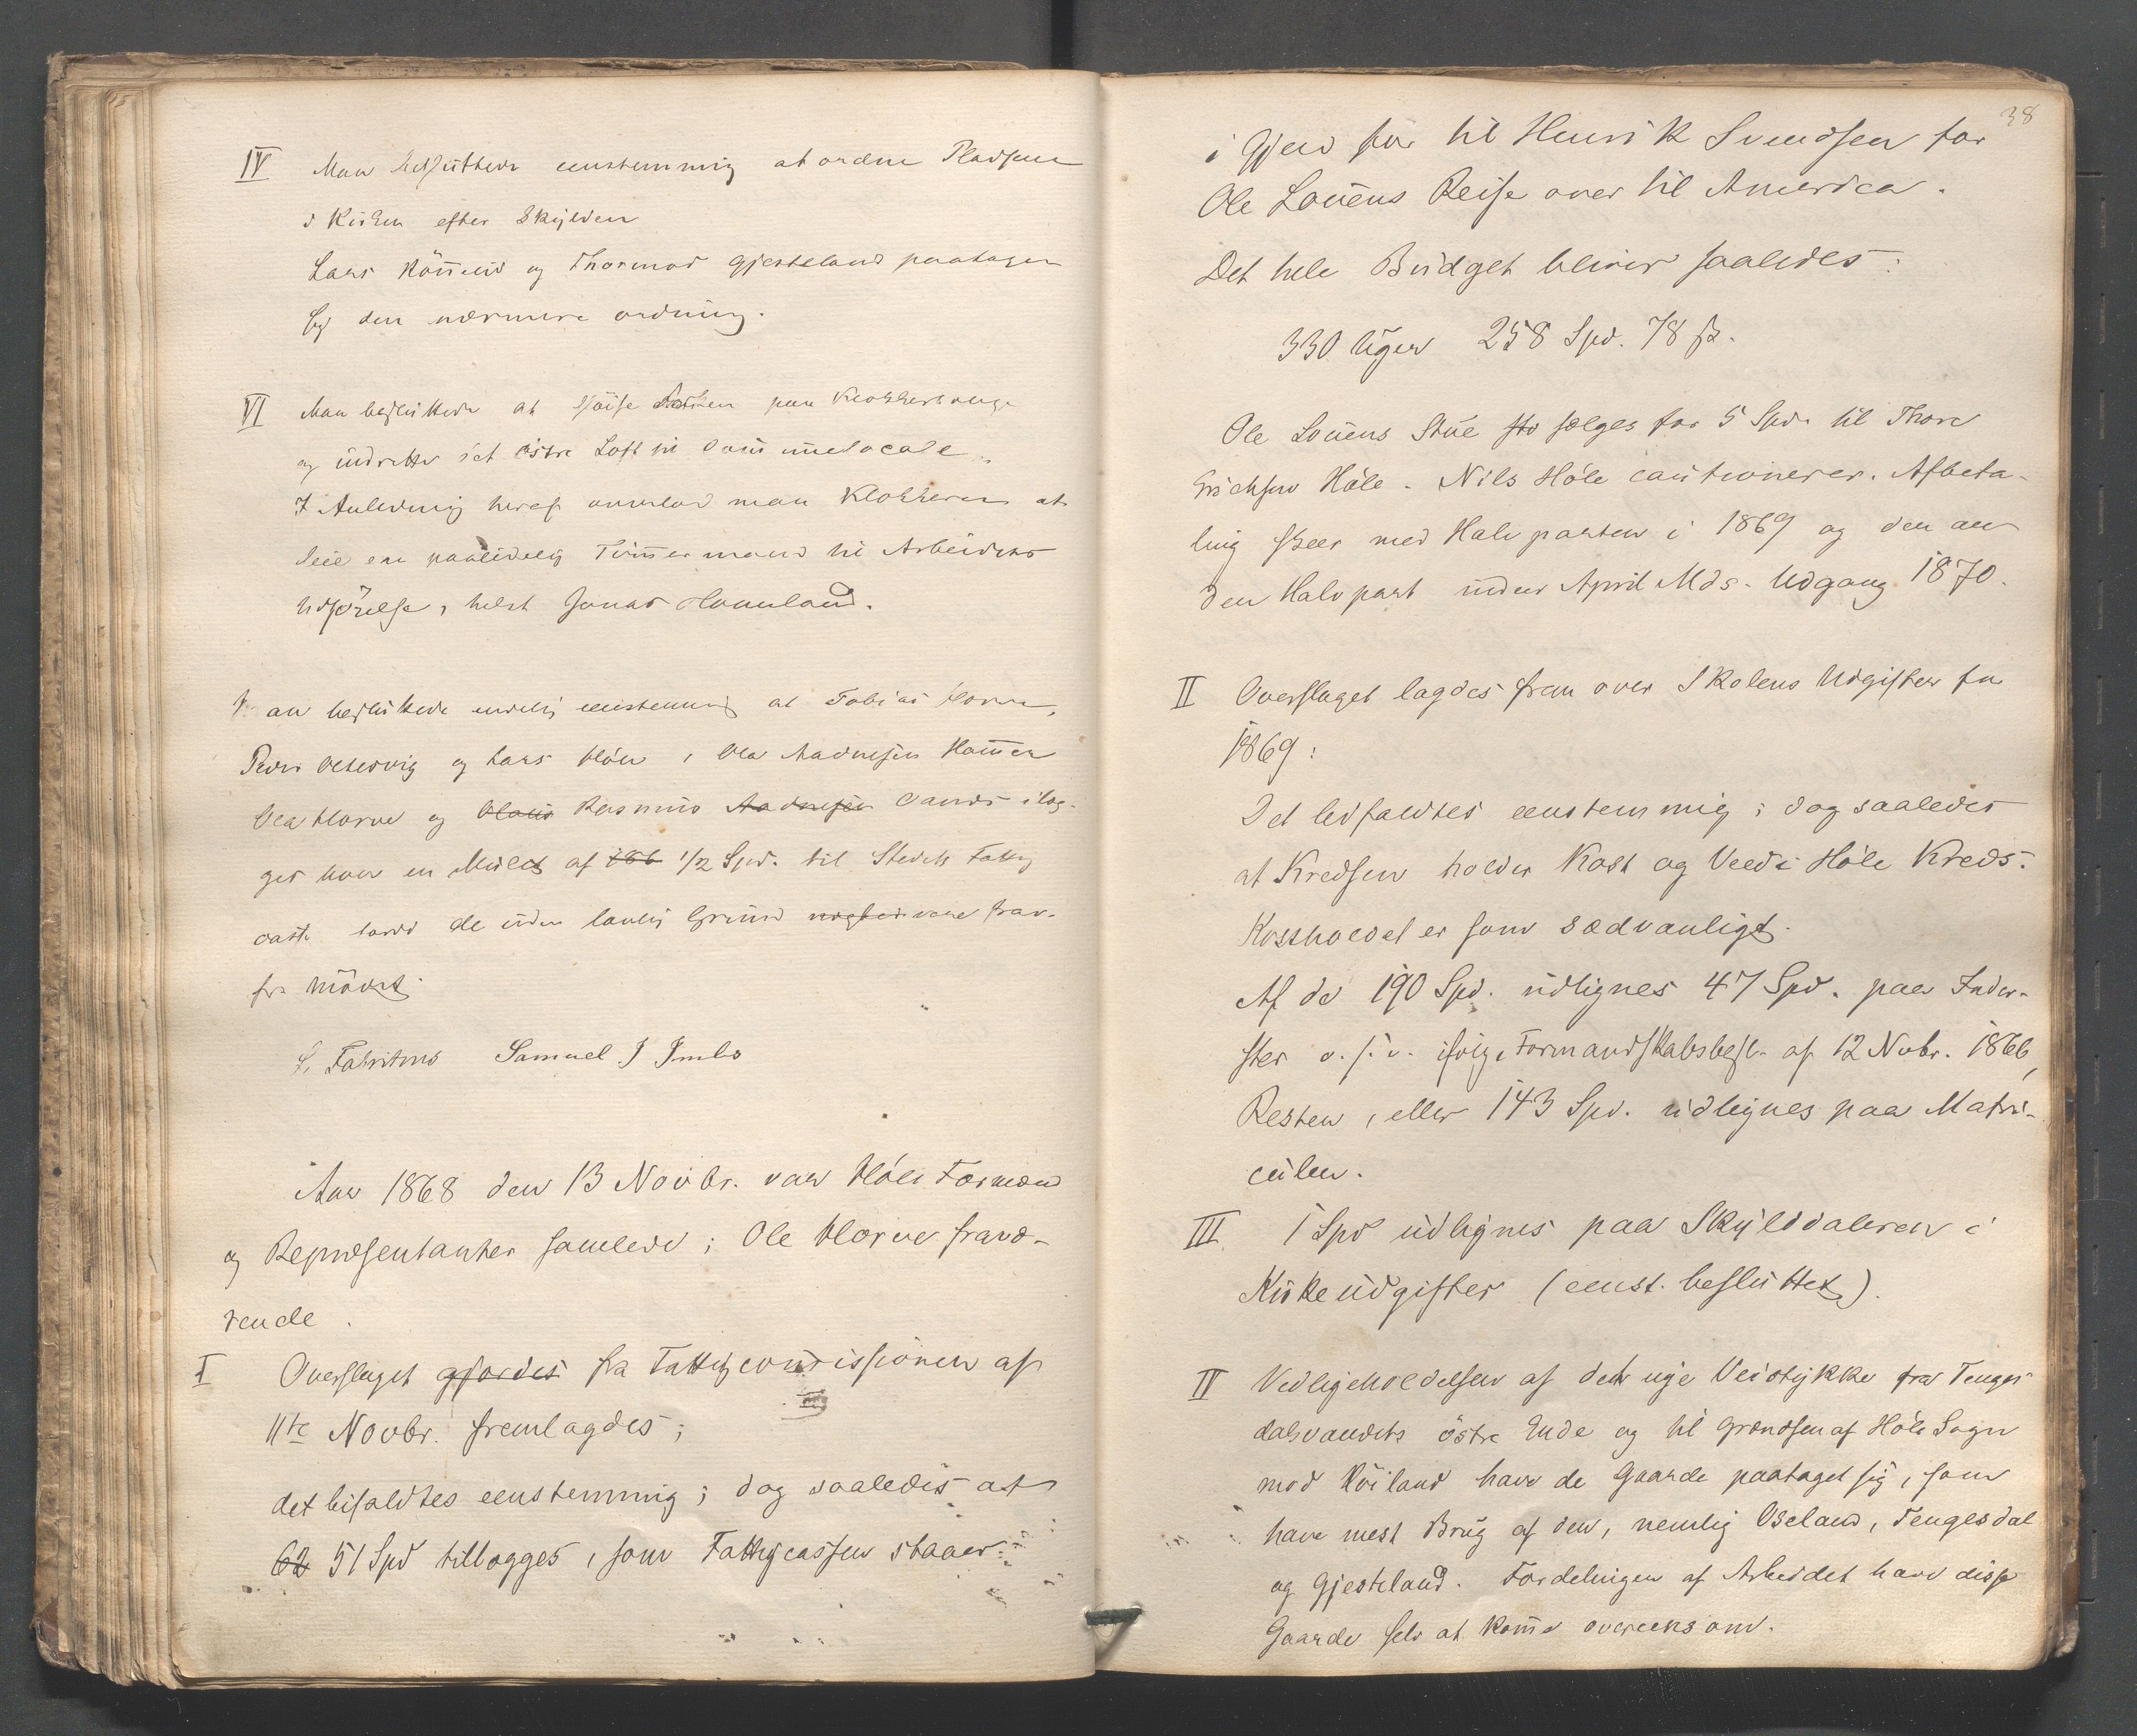 IV Man besluttede eenstemmig at ordne Pladsene
i Kirken efter Skylden
Lars og Thormod Gjesteland paatager
sig den nærmere ordning.
VI Man besluttede at paa
og indrette det østre Loft til Communelocale.
I Anledning heraf anmodes man Klokkeren at
leie en paalidelig Tømmermand til Arbeidets
Udførelse, helst Jonas Hommeland.
Man besluttede endelig eenstemmig at Tobias Horve,
Peder og Lars Høle, Ole Aadnesen Hommen
Ole Horve og Rasmus Aadnesen ilæg-
ges hver en Mulct af 1/2 Spd. til Stedets Fattig
casse, da de uden lovlig Grund vare fra-
fra Mødet.
Fabritius Samuel J Imbs
Aar 1868 den 13 Novbr. var Høle Formænd
og Repræsentanter samlede; Ole Horve fravæ-
rende.
I Overslaget gjordes fra Fattigcommissionen af
11te Novbr. fremlagdes;
det bifaldtes eenstemmig; dog saaledes at
62 51 Spd tillægges, som Fattigcassen staaer
38
i Gjæld for til Henrik Svendsen for
Ole Louens Reise over til America.
Det hele Budget bliver saaledes:
330 Uger 258 Spd. 78 ß.
Ole Louens Stue sto sælges for 5 Spd. til Thore
Erichsen Høle. Nils Høle cautionerer. Afbeta-
ling skeer med Halvparten i 1869 og den an-
den Halvpart inden April Mds. Udgang 1870.
II Overslaget lagdes frem over Skolens Udgifter for
1869:
Det bifaldtes eenstemmig; dog saaledes
at Kredsen holder Kost og Veed i Høle Kreds.
Kostholdet er som sædvanligt.
Af de 190 Spd. udlignes 47 Spd. paa Inder-
ster o.s.v. ifølge Formandskabsbesl. af 12 Novbr. 1866,
Resten, eller 143 Spd. udlignes paa Matri-
culen.
III 1 Spd udlignes paa Skylddaleren i
Kirkeudgifter (eenst. besluttet).
IV Vedligeholdelsen af det nye Veistykke fra Tenges-
dalsvandets østre Ende og til Grændsen af Høle Sogn
mod Høiland have de Gaarde paataget sig, som
have mest Brug af den, nemlig Oseland, Tengesdal
og Gjesteland. Fordelingen af Arbeidet have disse
Gaarde selv at komme overeens om.